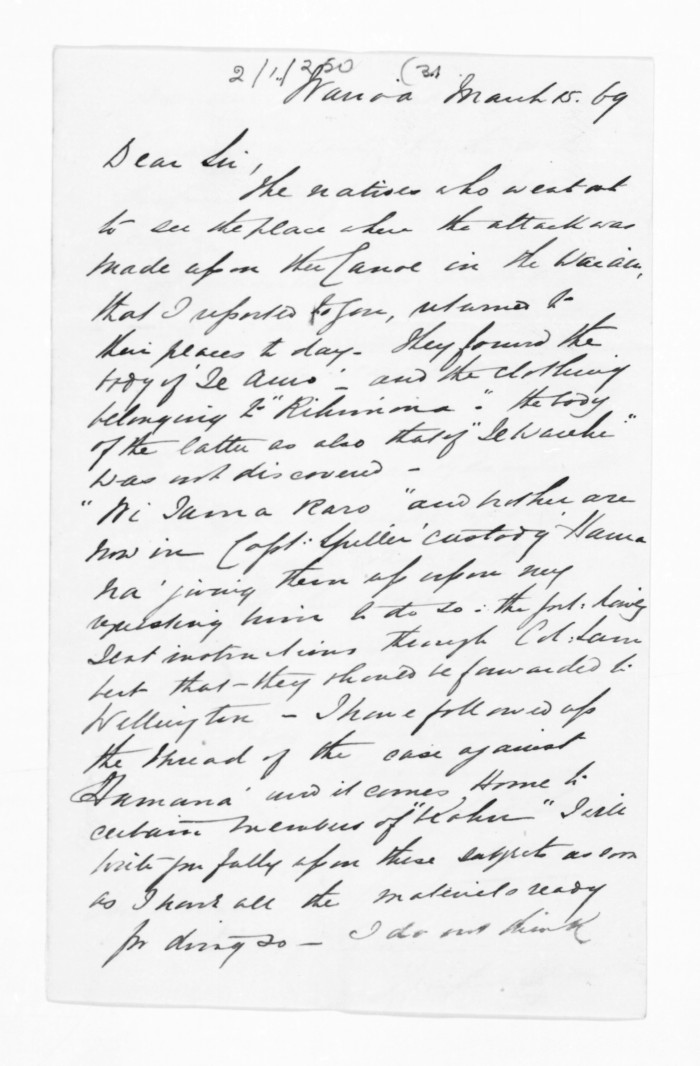 2/1/250 (3)
Wairoa March 15. 69
Dear Sir,
The natives who went out
to see the place where the attack was
made upon the Canoe in the Waiau,
that I reported to you, returned to
their places to day - They found the
body of 'Te Amo' - and the clothing
belonging to "Rihimona". the body
of the latter as also that of "Te Waeche"
was not discovered -
"Wi Tama Karo" and brother are
now in Capt: Spiller' custody Hama
na' giving them up upon my
requesting him to do so: the Govt: having
sent instructions through Col: Lam
bert that they should be forwarded to
Wellington - I have followed up
the thread of the case against
Hamana' and it comes Home to
certain members of "Kahu" I will
write you fully upon these subjects as soon
as I have all the materials ready
for doing so - I do not think